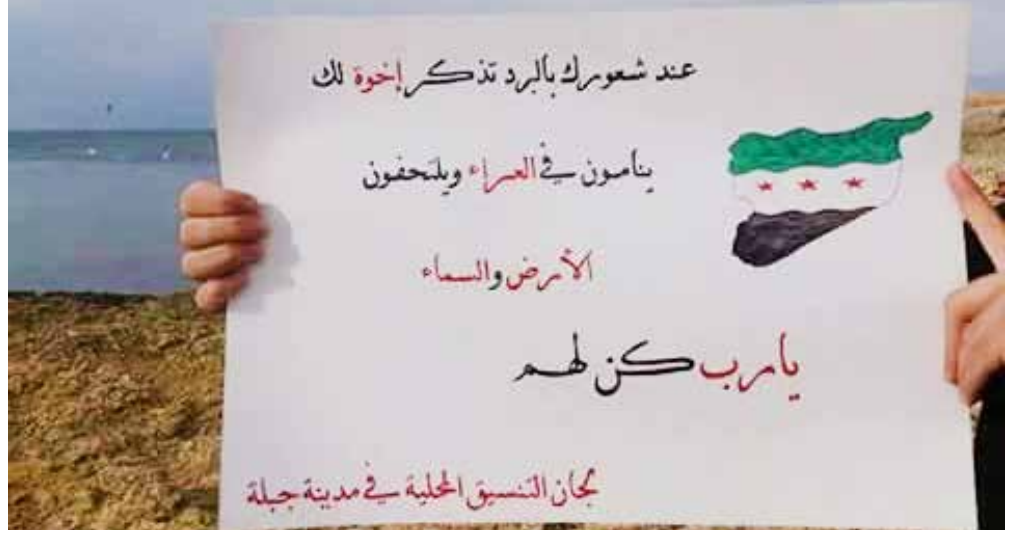 عند شعورك بالبرد تذكر إخوة لك
ينامون في العراء ويلتحفون
الأرض والسماء
يارب كن لهم
لجان التنسيق المحلية في مدينة جبلة